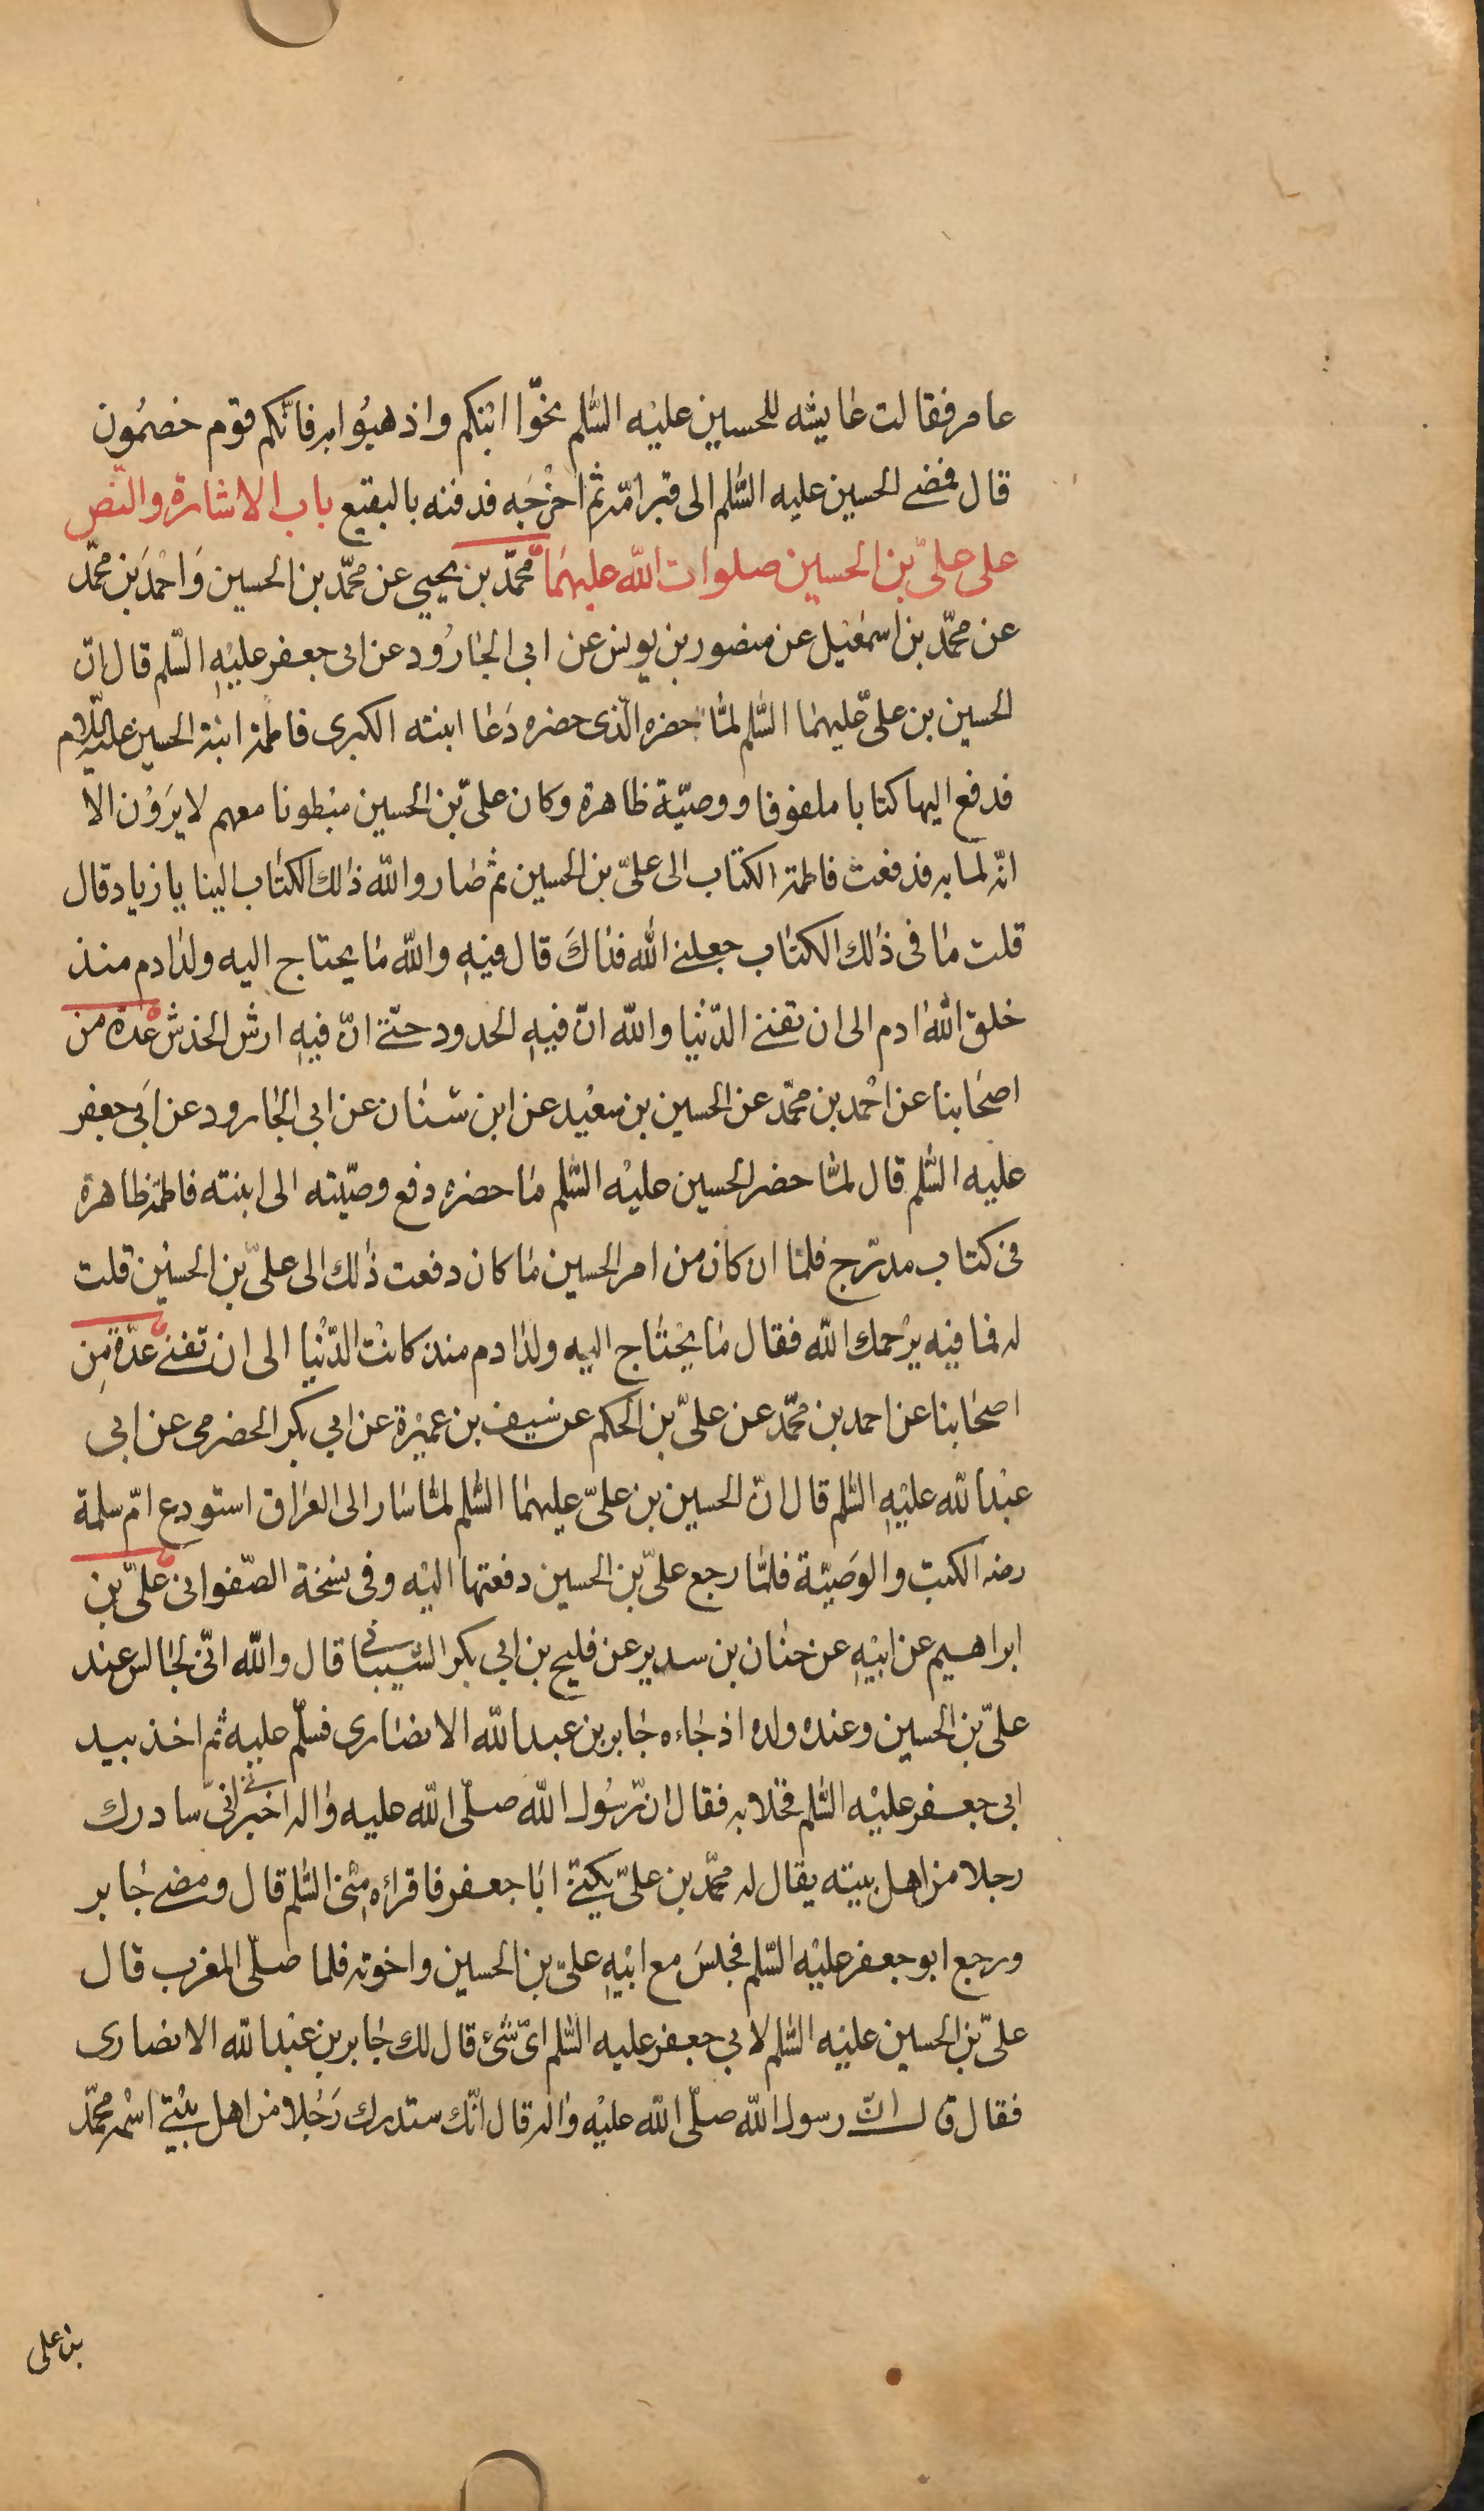 عامر فقالت عايشه للحسين عليه السّلم نحّوا ابنكم واذهبُوا به فانّكم قوم خصمُون
قال فمضى الحسين عليه السّلم الى قبر امّه ثم اخرجَه فدفنه بالبقيع باب الاشارة والنّص
على علىّ بن الحسين صلوات اللّه عليهما محمّد بن يحيى عن محمّد بن الحسين وَاحمَد بن محمّد
عن محمّد بن اسمعيل عن منصور بن يونس عن ابى الجارُود عن ابى جعفر عليهِ السّلم قال انّ
الحسين بن علىّ عليهما السّلم لمّا حضره الّذى حضره دَعا ابنته الكبرى فاطمة ابنة الحسين عليه السّلام
فدفع اليها كتابا ملفوفا ووصيّة ظاهرة وكان علىّ بن الحسين مبطونا معهم لا يرَوْن الّا
انّه لما به فدفعت فاطمة الكتاب الى علىّ بن الحسين ثم صار واللّه ذلك الكتاب الينا يا زياد قال
قلت ما فى ذلك الكتاب جعلنى اللّه فداكَ قال فيهِ واللّه ما يحتاج اليه ولد ادم منذ
خلق اللّه ادم الى ان تفنى الدّنيا واللّه انّ فيهِ الحدود حتّى انّ فيهِ ارش الخدش عدّة من
اصحَابنا عن احمد بن محمّد عن الحسين بن سعيد عن ابن سنان عن ابى الجارود عن ابَى جعفر
عليه السّلم قال لمّا حضر الحسين عليْه السّلم ما حضره دفع وصيّته الى ابنته فاطمة ظاهرة
فى كتاب مدرّج فلمّا ان كان من امر الحسين ما كان دفعت ذلك الى علىّ بن الحسين قلت
له فما فيه يرْحمك اللّه فقال ما يحْتاج اليه ولد ادم منذ كانت الدّنيا الى ان تفنى عدّة مِن
اصحَابنا عن احمد بن محمّد عن علىّ بن الحكم عن سَيف بن عميْرة عن ابى بكر الحضرمى عن ابى
عبْد اللّه عليْهِ السّلم قال انّ الحسين بن علىّ عليهما السّلم لمّا سَار الى العراق استودع امّ سلمة
رضه الكتب والوَصيّة فلمّا رجع علىّ بن الحسين دفعتها اليْه وفى نسخة الصّفوانى علىّ بن
ابراهيم عن ابيْهِ عن حنان بن سدير عن فليح بن ابى بكر الشّيبانى قال واللّه انّى لجالس عند
علىّ بن الحسين وعنده ولده اذ جاءه جابر بن عبد اللّه الانصارى فسلّم عليه ثم اخذ بيد
ابى جعفر عليْه السّلم فخلا به فقال انّ رسُول اللّه صلّى اللّه عليه واله اخبرنى انّى سادرك
رجلا من اهل بيته يقال له محمّد بن علىّ يكنى ابا جعفر فاقرأه مِنّى السّلم قال ومضى جابر
ورجع ابو جعفر عليْه السّلم فجلسَ مع ابيْهِ علىّ بن الحسين واخوته فلما صلّى المغرب قال
علىّ بن الحسين عليْه السّلم لابى جعفر عليه السّلم اىّ شىْ قال لك جابر بن عبْد اللّه الانصارى
فقال قال انّ رسول اللّه صلّى اللّه عليْه واله قال انّك ستدرك رَجُلا من اهل بيْتى اسْمه محمّد
بن على